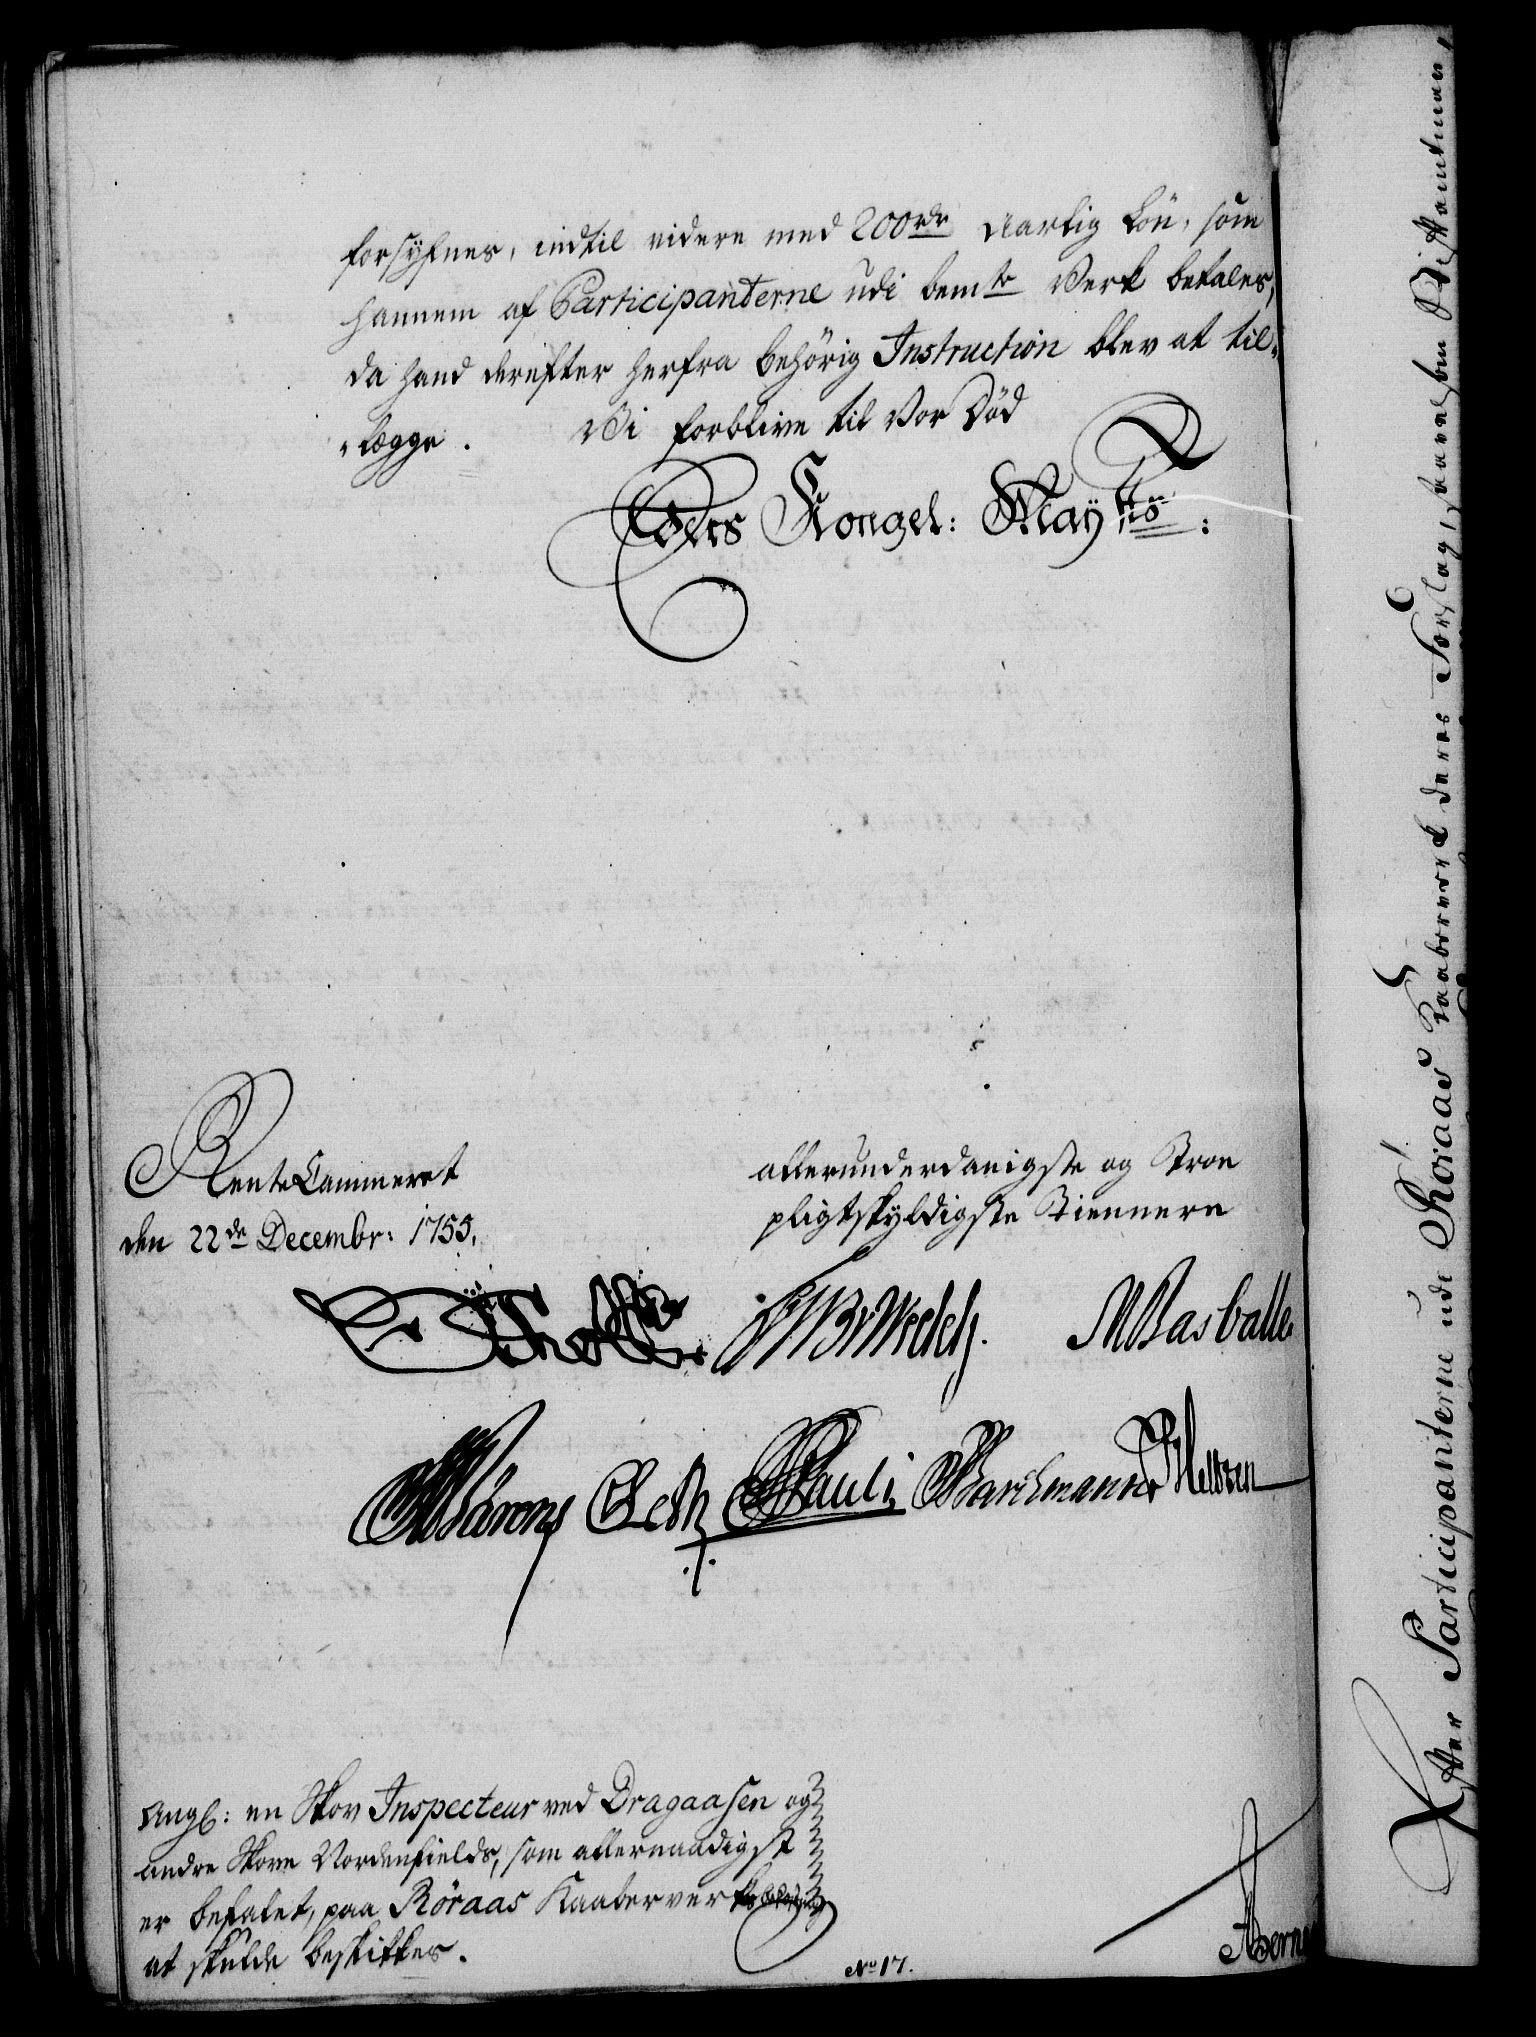 forsÿnes, indtil videre med 200 rdr Aarlig Løn, som
hannem af Participanterne udi bemte Verk betales,
da hand derefter herfra behörig Instruction blev at til-
-legge. Vi forblive til Vor Død
Eders Kongel: Maÿtts:
RenteCammeret
den 22de Decembr: 1755.
allerunderdanigste og Troe
pligtskyldigste Tiennere
Pauli
Ang: en Skov Inspecteur ved Dragaasen og
andre Skove Nordenfields, som allernaadigst
er befalet, paa Röraas Kaaberverks
at skulde beskikkes.
No 17.
Efter Participanterne udi Röraas Kaaberverk deres Forslag, saavelsom Stiftamtmand